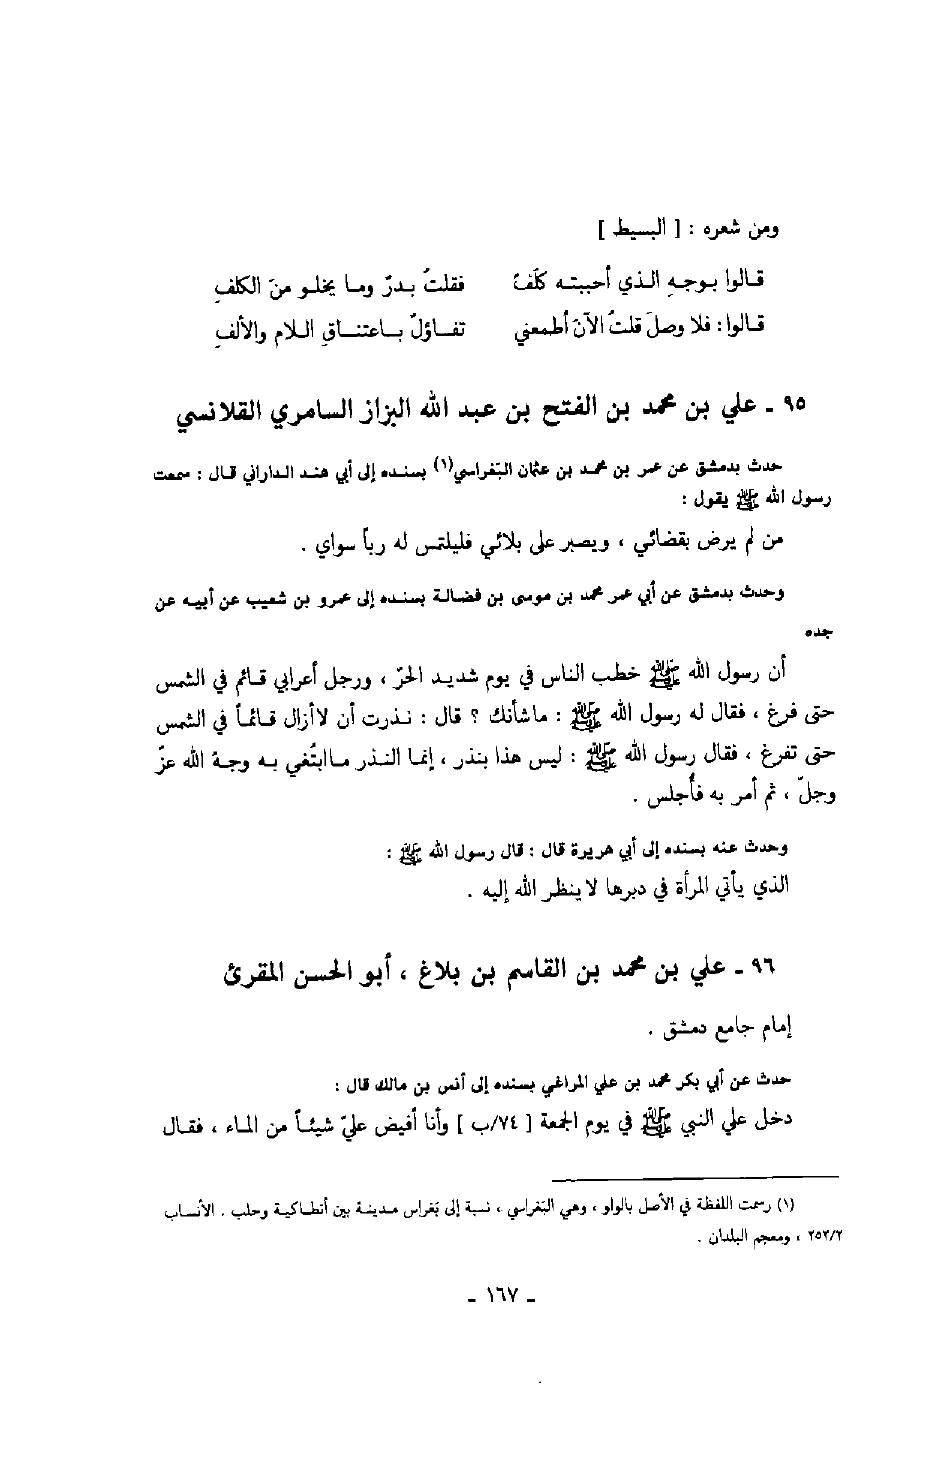 ومن شعره : [ البسيط ]
قالوا بوجهِ الذي أحببته كلَفٌ فقلتُ بدرٌ وما يخلو منَ الكلفِ
قالوا : فلا وصلَ قلتُ الآنَ أطمعني تفاؤلٌ باعتناقِ اللام والألفِ
٩٥ ـ علي بن محمد بن الفتح بن عبد الله البزاز السامري القلانسي
حدث بدمشق عن عمر بن محمد بن عثمان البَغراسي(١) بسنده إلى أبي هند الداراني قال : سمعت
رسول الله ﷺ يقول :
من لم يرض بقضائي ، ويصبر على بلائي فليلتمس له رباً سواي .
وحدث بدمشق عن أبي عمر محمد بن موسى بن فضالة بسنده إلى عمرو بن شعيب عن أبيه عن
جده
أن رسول الله ﷺ خطب الناس في يوم شديد الحرّ ، ورجل أعرابي قائم في الشمس
حتى فرغ ، فقال له رسول الله ﷺ : ماشأنك ؟ قال : نذرت أن لاأزال قائماً في الشمس
حتى تفرغ ، فقال رسول الله ﷺ : ليس هذا بنذر ، إنما النذر ماابتُغي به وجهُ الله عزّ
وجلّ ، ثم أمر به فأُجلس .
وحدث عنه بسنده إلى أبي هريرة قال : قال رسول الله ﷺ :
الذي يأتي المرأة في دبرها لاينظر الله إليه .
٩٦ ـ علي بن محمد بن القاسم بن بلاغ ، أبو الحسن المقرئ
إمام جامع دمشق .
حدث عن أبي بكر محمد بن علي المراغي بسنده إلى أنس بن مالك قال :
دخل علي النبي ﷺ في يوم الجمعة [ ٧٤/ب ] وأنا أفيض عليّ شيئاً من الماء ، فقال
(١) رسمت اللفظة في الأصل بالواو ، وهي البَغراسي ، نسبة إلى بَغراس مدينة بين أنطاكية وحلب . الأنساب
٢٥٣/٢ ، ومعجم البلدان .
ـ ١٦٧ ـ